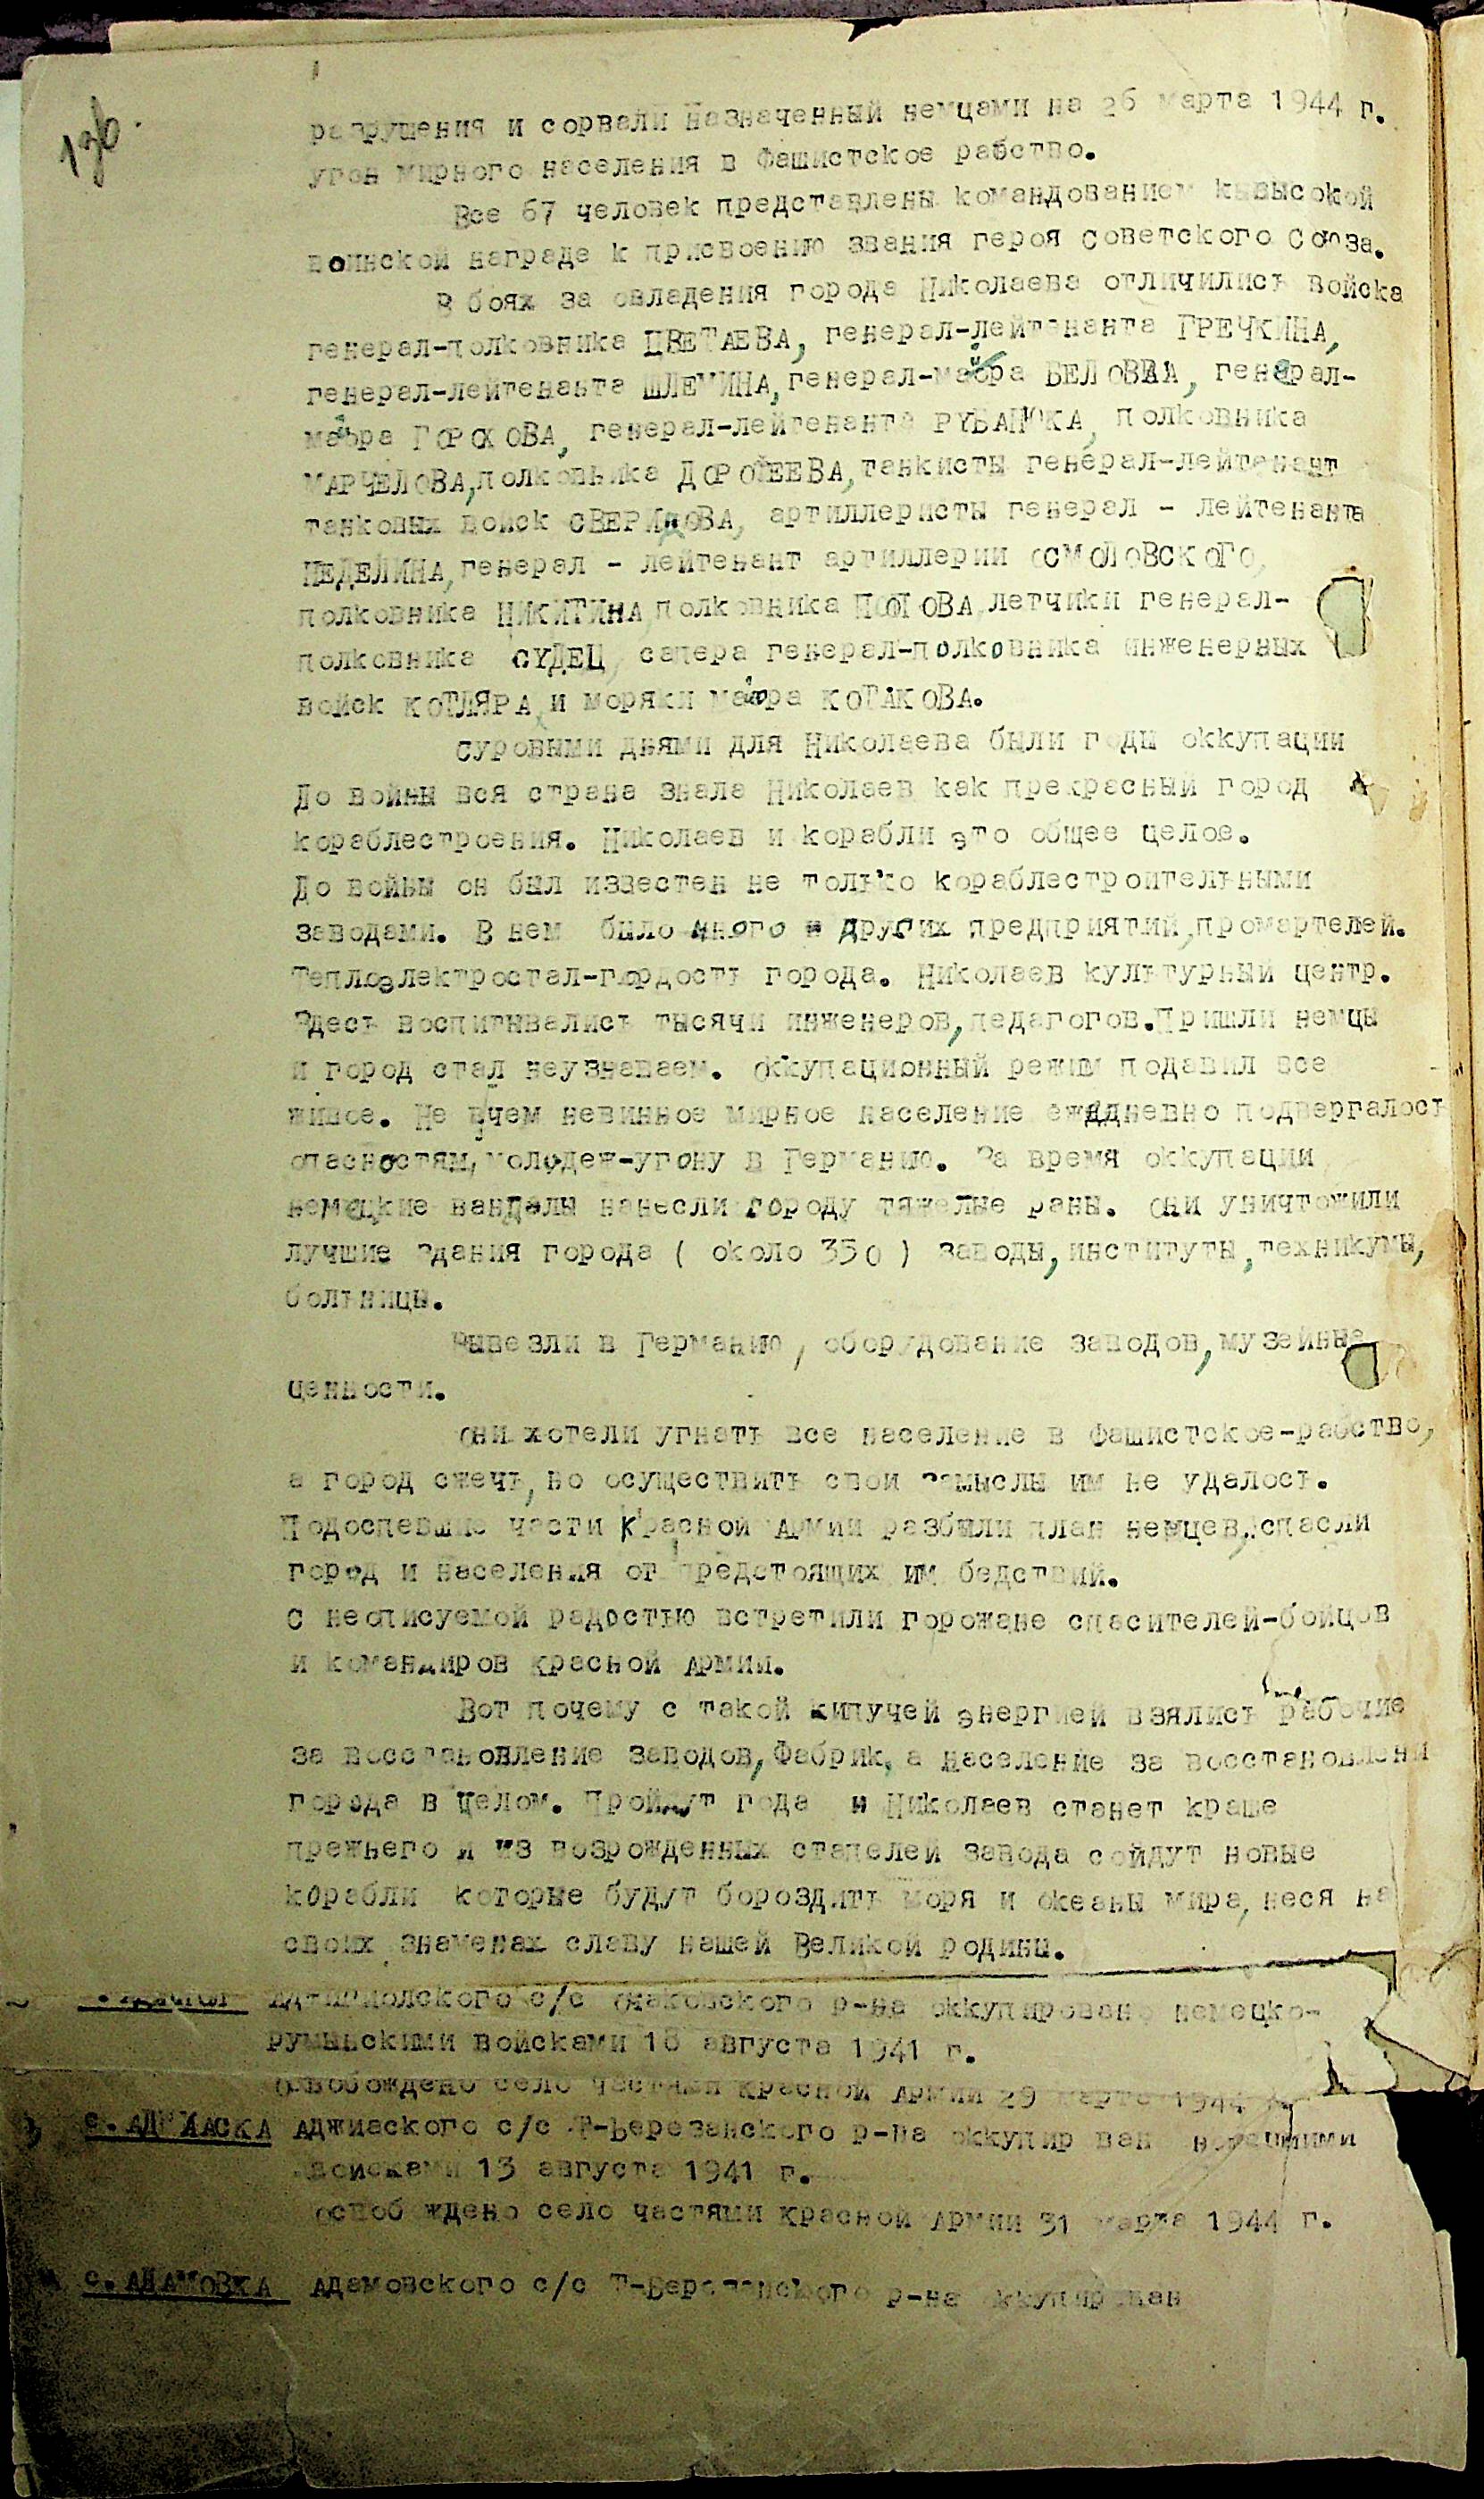 136.
разрушения и сорвали назначенный немцами на 26 марта 1944 г.
угон мирного населения в фашистское рабство.
Все 67 человек представлены командованием квысокой
воинской награде к присвоению звания героя советского союза.
В боях за овладения города Николаева отличились войска
генерал-полковника ЦВЕТАЕВА, генерал-лейтенанта ГРЕЧКИНА,
генерал-лейтенанта ШЛЕМИНА, генерал-майора БЕЛОВА, генерал-
майора ГОРОХОВА, генерал-лейтенанта РУБАНЮКА, полковника
МАРЧЕЛОВА, полковника ДОРОФЕЕВА, танкисты генерал-лейтенант
танковых войск СВЕРИДОВА, артиллеристы генерал - лейтенанта
НЕДЕЛИНА, генерал - лейтенант артиллерии ОСМОЛОВСКОГО,
полковника НИКИТИНА, полковника ПОПОВА, летчики генерал-
полковника СУДЕЦ, сапера генерал-полковника инженерных
войск КОТЛЯРА и моряки майора КОТАКОВА.
суровыми днями для Николаева были годы оккупации
До войны вся страна знала Николаев как прекрасный город
кораблестроения. Николаев и корабли это общее целое.
До войны он был известен не только кораблестроительными
заводами. В нем было много и других предприятий, промартелей.
Теплоэлектростал-гордость города. Николаев культурный центр.
Здесь воспитывались тысячи инженеров, педагогов. Пришли немцы
и город стал неузнаваем. Оккупационный режим подавил все
живое. Не вчем невинное мирное население ежедневно подвергалось
опасностям, молодеж-угону в Германию. За время оккупации
немецкие вандалы нанесли городу тяжелые раны. Они уничтожили
лучшие здания города ( около 350 ) заводы, институты, техникумы,
больницы.
Вывезли в Германию, оборудование заводов, музейные
ценности.
Они хотели угнать все население в фашистское-рабство,
а город сжечь, но осуществить свои замыслы им не удалось.
Подоспевшие части Красной Армии разбили план немцев, спасли
город и населения от предстоящих им бедствий.
С неописуемой радостью встретили горожане спасителей-бойцов
и командиров красной Армии.
Вот почему с такой кипучей энергией взялись рабочие
за восстановление заводов, Фабрик, а население за восстановлени
города в целом. Пройдут года и Николаев станет краше
прежнего и из возрожденных стапелей завода сойдут новые
корабли которые будут бороздить моря и океаны мира, неся на
своих знаменах славу нашей Великой родины.
с/с Очаковского р-на оккупировано немецко-
румынскими войсками 18 августа 1941 г.
Освобождено село частями красной Армии 29 марта 1944 г.
с. АДЖИАСКА Аджиаского с/с Т-Березанского р-на оккупирован немецкими
войсками 13 августа 1941 г.
освобождено село частями красной Армии 31 марта 1944 г.
с. АДАМОВКА Адамовского с/с Т-Березанского р-на оккупирован